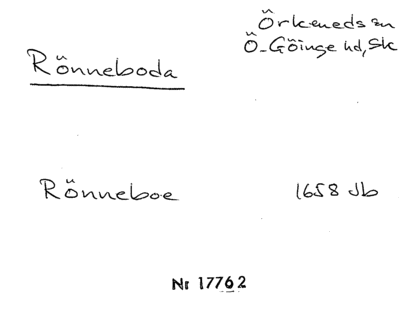 Örkeneds sn
Ö-Göinge hd, Sk
Rönneboda
Rönneboe 1658 Jb
Nr 17762